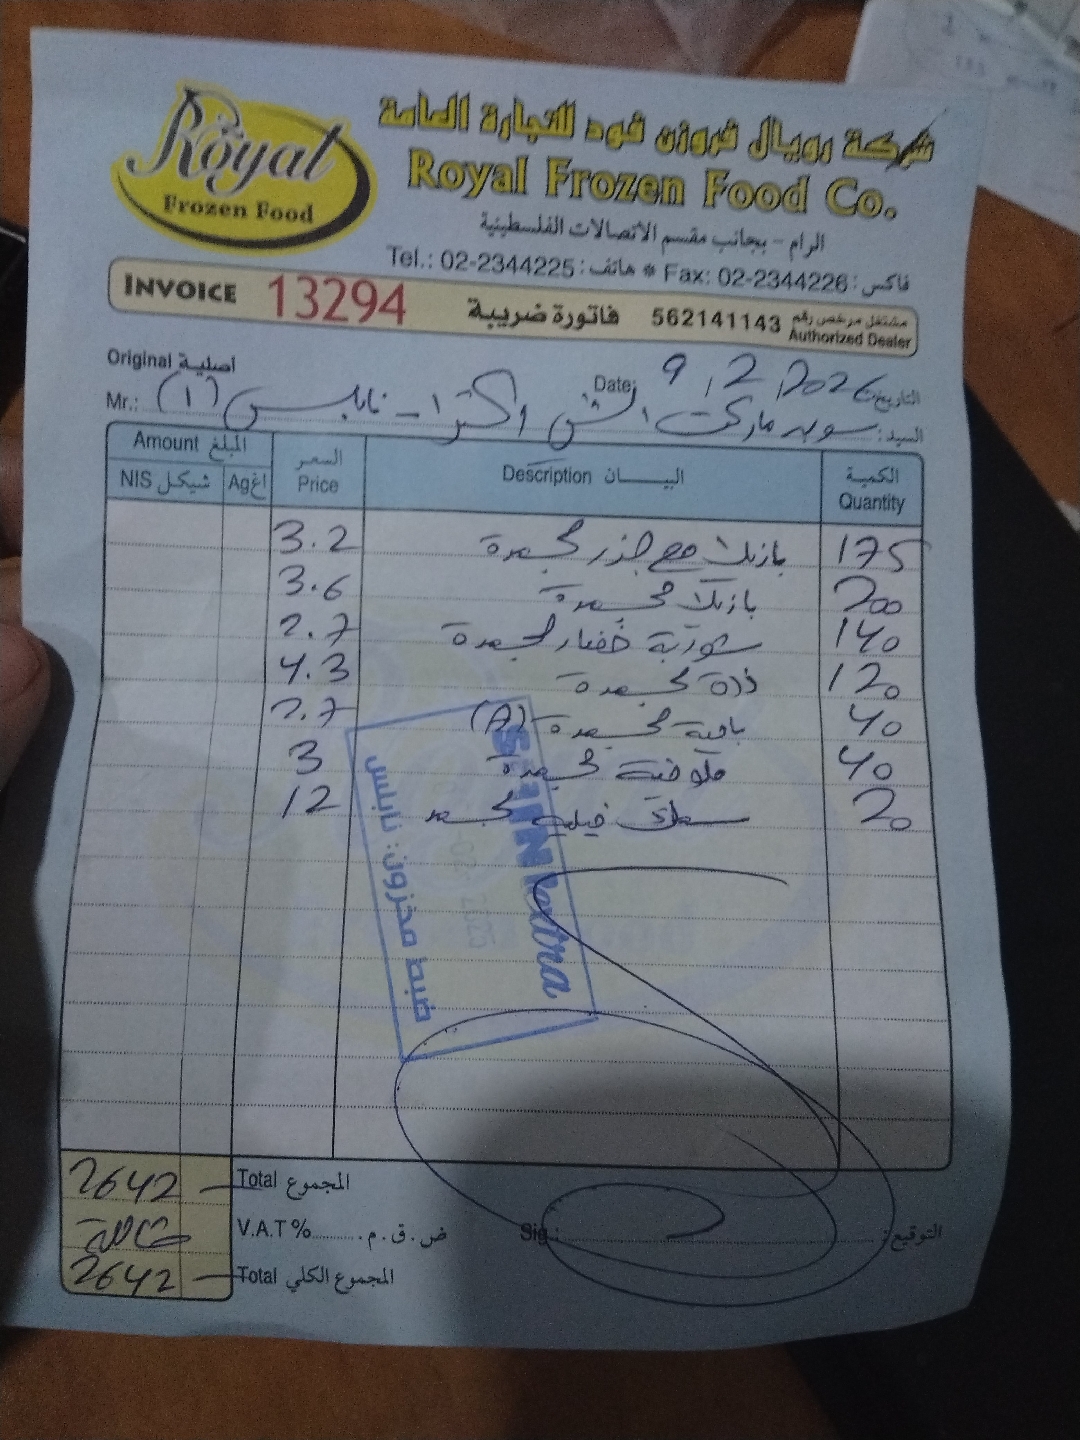 Royal
Frozen Food
شركة رويال فروزن فود للتجارة العامة
Royal Frozen Food Co.
الرام - بجانب مقسم الاتصالات الفلسطينية
Tel.: 02-2344225 : هاتف * Fax: 02-2344226 : فاكس
INVOICE 13294 فاتورة ضريبة 562141143 مشتغل مرخص رقم Authorized Dealer
Original أصلية
Date: 9/2/2026 التاريخ
Mr.: السيد: سوبر ماركت اكسترا - نابلس (1)
Amount المبلغ السعر Price Description البيــان الكمية Quantity
NIS شيكل Ag اغ
3.2 بازيلا مع جزر مجمدة 175
3.6 بازيلا مجمدة 200
2.7 شوربة خضار مجمدة 140
4.3 ذرة مجمدة 120
2.7 بامية مجمدة (A) 40
3 ملوخية مجمدة 40
12 سمك فيليه مجمد 20
extra
ضبط مخزون: نابلس
2642 Total المجموع
شاملة V.A.T% ض.ق.م.
Sig.: التوقيع:
2642 Total المجموع الكلي